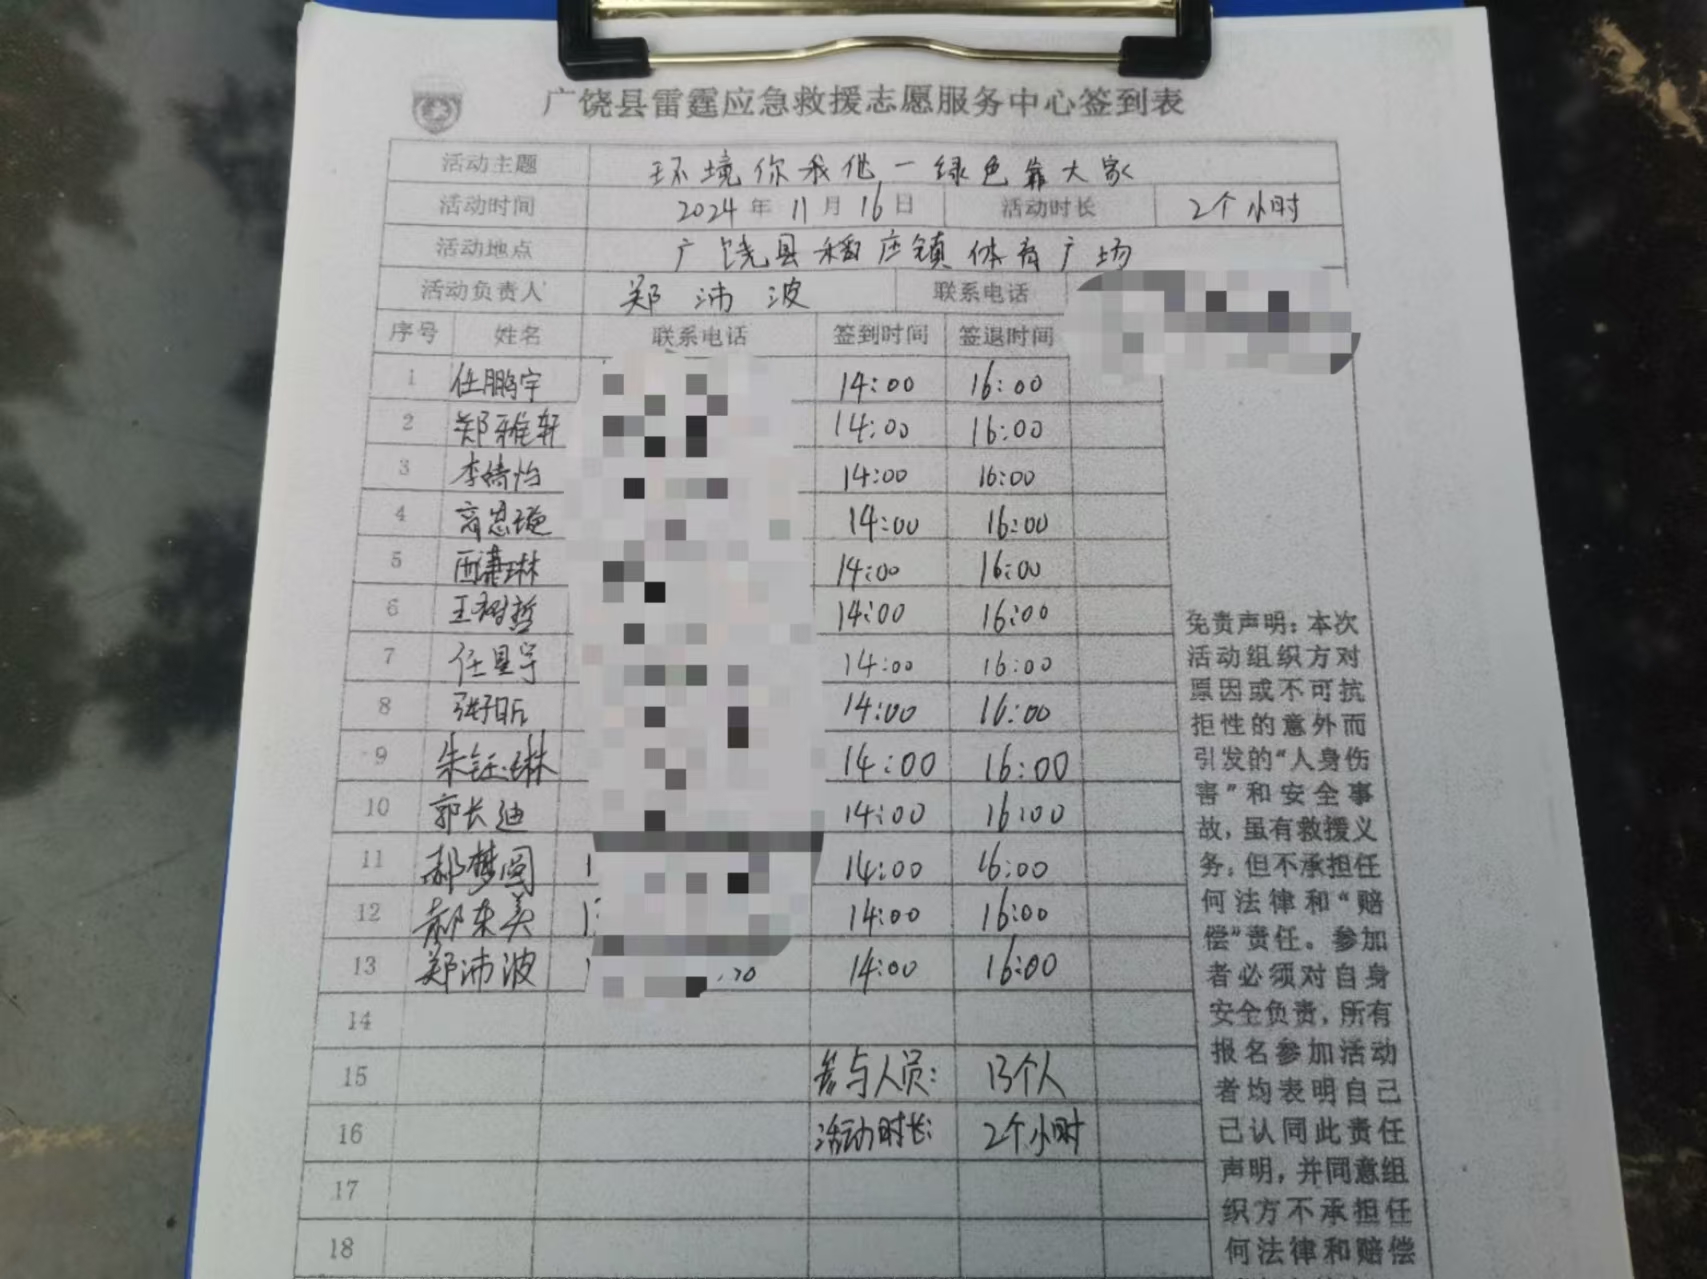 广饶县雷霆应急救援志愿服务中心签到表
活动主题 环境你我他一绿色靠大家
活动时间 2024年11月16日 活动时长 2个小时
活动地点 广饶县稻庄镇体育广场
活动负责人 郑沛波 联系电话
序号 姓名 联系电话 签到时间 签退时间
1 任鹏宇 14:00 16:00
2 郑雅轩 14:00 16:00
3 李婧怡 14:00 16:00
4 14:00 16:00
5 西潇琳 14:00 16:00
6 王树哲 14:00 16:00
7 任星宇 14:00 16:00
8 14:00 16:00
9 朱钰琳 14:00 16:00
10 郭长迪 14:00 16:00
11 郝梦圆 1 14:00 16:00
12 郝来美 1 14:00 16:00
13 郑沛波 14:00 16:00
14
15 参与人员: 13个人
16 活动时长: 2个小时
17
18
免责声明：本次
活动组织方对
原因或不可抗
拒性的意外而
引发的“人身伤
害”和安全事
故，虽有救援义
务，但不承担任
何法律和“赔
偿”责任。参加
者必须对自身
安全负责，所有
报名参加活动
者均表明自己
已认同此责任
声明，并同意组
织方不承担任
何法律和赔偿